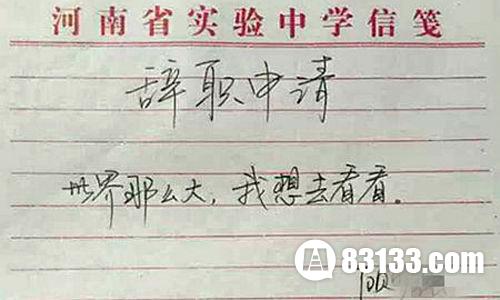 河南省实验中学信笺
辞职申请
世界那么大，我想去看看。
83133.com